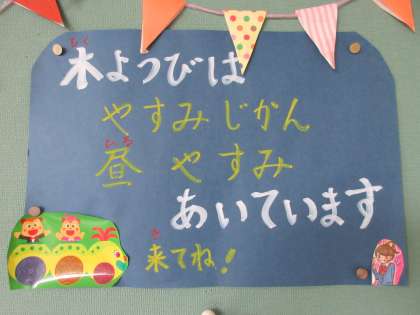 木ようびは
やすみじかん
昼 やすみ
あいています
来てね!